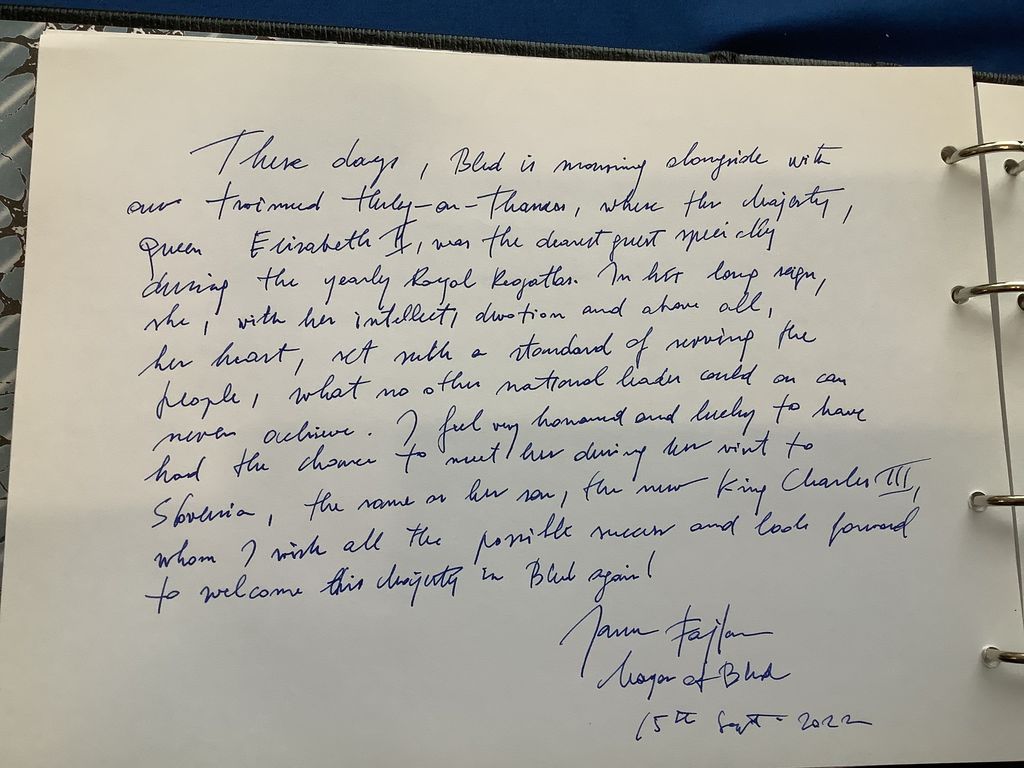 These days, Bled is mourning alongside with
our twinned Henley-on-Thames, where Her Majesty,
Queen Elizabeth II, was the dearest guest specially
during the yearly Royal Regattas. In her long reign,
she, with her intellect, devotion and above all,
her heart, set such a standard of serving the
people, what no other national leader could or can
never achieve. I feel very honoured and lucky to have
had the chance to meet her during her visit to
Slovenia, the same as her son, the new King Charles III,
whom I wish all the possible success and look forward
to welcome His Majesty in Bled again!
Janez Fajfar
Mayor of Bled
15th Sept. 2022